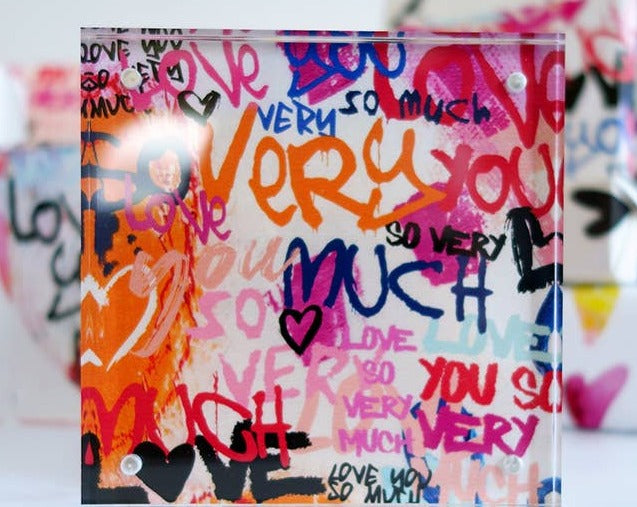 LOVE YOU
SO VERY
MUCH
Love
you
Love
VERY
SO MUCH
SO
very
YOU
LOVE
SO VERY
you
MUCH
SO
LOVE
LOVE
VERY
SO
YOU SO
VERY
MUCH
MUCH
VERY
LOVE
LOVE YOU
SO MUCH
MUCH
LOVE